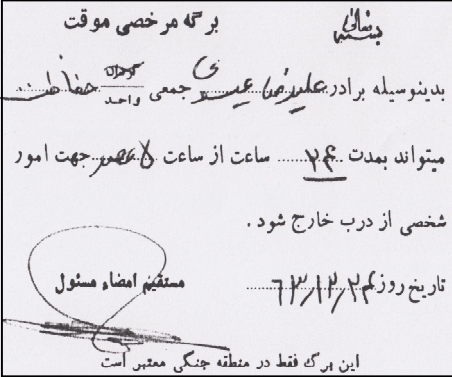 بسمه تعالی
برگه مرخصی موقت
بدینوسیله برادر علیرضا عیدی جمعی گردان واحد حفاظت
میتواند بمدت ۲۴ ساعت از ساعت ۵ عصر جهت امور
شخصی از درب خارج شود.
تاریخ روز ۶۳/۱۲/۲۴
مستقیم امضاء مسئول
این برگ فقط در منطقه جنگی معتبر است